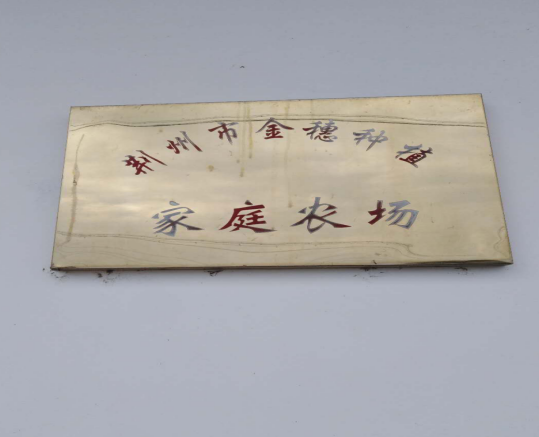 荆州市金穗种植
家庭农场